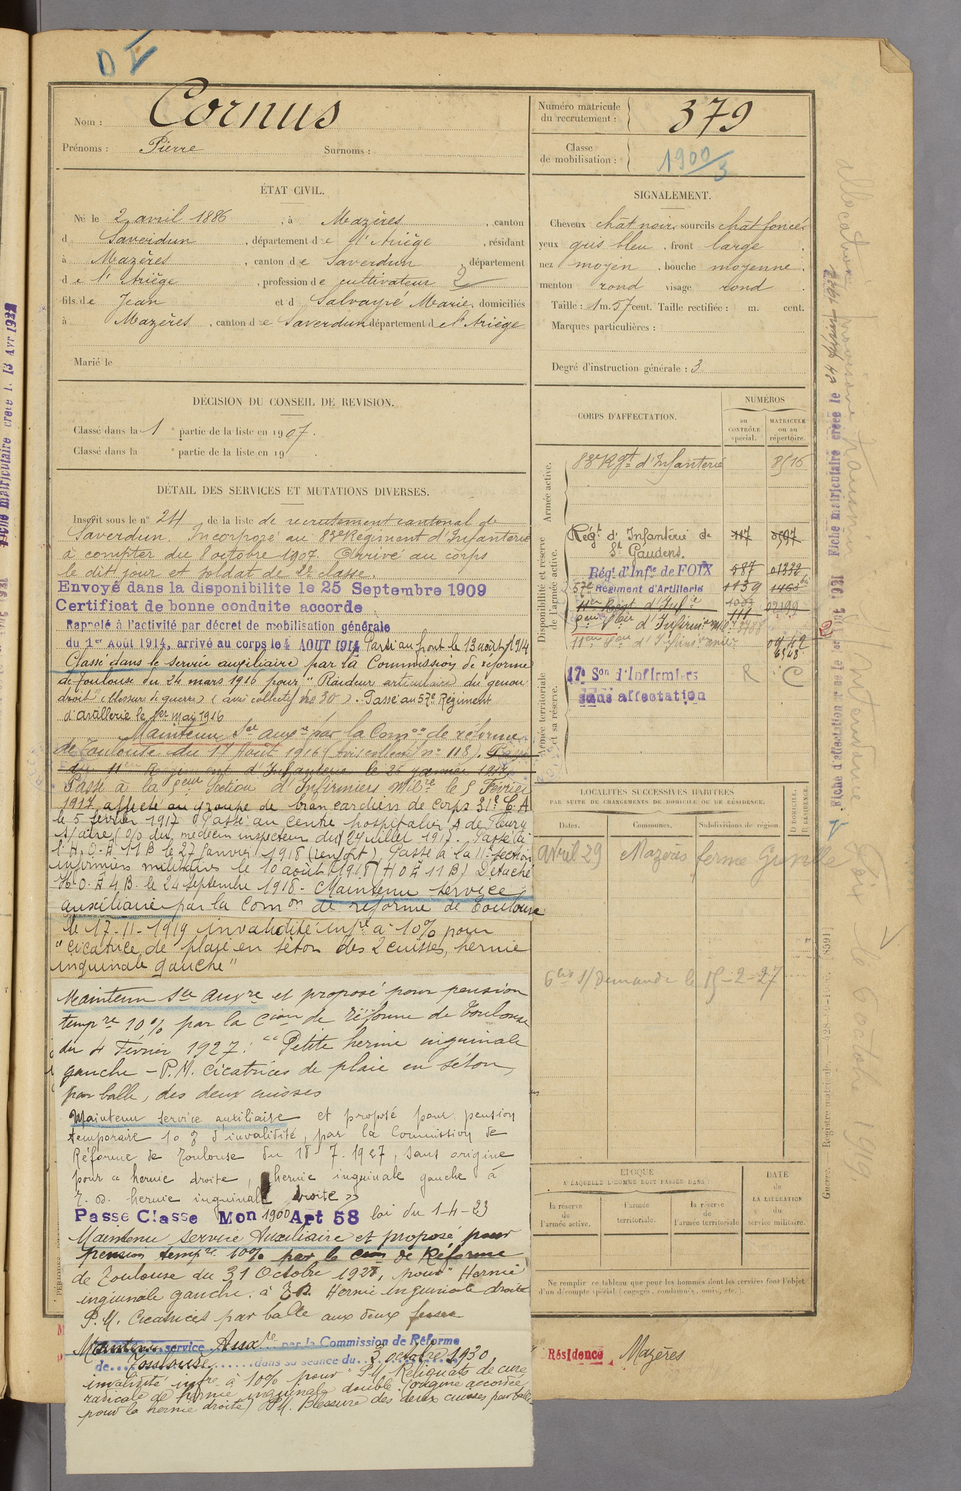 DE
Nom : Cornus
Prénoms : Pierre Surnoms :
Numéro matricule du recrutement : 379
Classe de mobilisation : 1900/3
ÉTAT CIVIL.
Né le 2 avril 1886, à Mazères, canton
d Saverdun, département de l'Ariège, résidant
à Mazères, canton de Saverdun, département
de l'Ariège, profession de cultivateur 2
fils de Jean et d Salvayre Marie, domiciliés
à Mazères, canton de Saverdun département de l'Ariège
Marié le
SIGNALEMENT.
Cheveux chât noirs sourcils chât foncés
yeux gris bleu, front large
nez moyen, bouche moyenne,
menton rond visage rond
Taille : 1 m. 57 cent. Taille rectifiée : m. cent.
Marques particulières :
Degré d'instruction générale : 3
DÉCISION DU CONSEIL DE REVISION.
Classé dans la 1e partie de la liste en 1907.
Classé dans la e partie de la liste en 19
DÉTAIL DES SERVICES ET MUTATIONS DIVERSES.
Inscrit sous le n° 24 de la liste de recrutement cantonal de
Saverdun. Incorporé au 83e Régiment d'Infanterie
à compter du 8 octobre 1907. Arrivé au corps
le dit jour et soldat de 2e classe.
Envoyé dans la disponibilité le 25 Septembre 1909
Certificat de bonne conduite accordé
Rappelé à l'activité par décret de mobilisation générale
du 1er Août 1914, arrivé au corps le 4 AOUT 1914 Parti au front le 13 août 1914
Classé dans le service auxiliaire par la Commission de réforme
de Toulouse du 24 mars 1916 pour "Raideur articulaire du genou
droit (blessure de guerre) (avis collectif no 30"). Passé au 57e Régiment
d'artillerie le 1er mai 1916
Maintenu Sce auxre par la Comon de réforme
de Toulouse du 17 Août 1916 (avis collectif n° 118). Passé
au 11e Régiment d'Infanterie le 26 janvier 1917
Passé à la 5eme Section d'Infirmiers Mlre le 5 Février
1917, affecté au groupe de brancardiers de Corps 31e C.A
le 5 février 1917. Passé au Centre hospitalier A de Fleury
s/aire (o/o du médecin inspecteur du 24 juillet 1917. Passé à
l'H.O.E 11 B le 27 Janvier 1918 (renfort). Passé à la 11e section
infirmiers militaires le 10 août 1918 (HOE 11 B) Détaché
H.O.E 4 B. le 24 septembre 1918. Maintenu service
auxiliaire par la Comon de réforme de Toulouse
le 17-11-1919 invalidité infre à 10% pour
"cicatrice de plaie en séton des 2 cuisses, hernie
inguinale gauche"
Maintenu Sce auxre et proposé pour pension
tempre 10% par la Cion de réforme de Toulouse
du 4 Février 1927 : "Petite hernie inguinale
gauche - P.M. cicatrices de plaie en séton,
par balle, des deux cuisses
Maintenu service auxiliaire et proposé pour pension
temporaire 10 % d'invalidité, par la Commission de
Réforme de Toulouse du 18-7-1927, sans origine
pour "hernie droite, hernie inguinale gauche à
T. D. hernie inguinale droite"
Passé Classe Mon 1900 Art 58 loi du 1-4-23
Maintenu Service Auxiliaire et proposé pour
pension tempre 10% par la Cion de Réforme
de Toulouse du 31 Octobre 1928, pour "Hernie
inguinale gauche. à T.D. Hernie inguinale droite
P.M. Cicatrices par balle aux deux
Maintenu service Auxre par la Commission de Réforme
de Toulouse dans sa séance du 3 octobre 1930
invalidité infre à 10% pour "P.M. Reliquats de cure
radicale de hernie inguinale double (origine accordée
pour la hernie droite) P.M. Blessure des deux cuisses par balle
CORPS D'AFFECTATION.
NUMÉROS
AU CONTRÔLE spécial.
MATRICULE ou au répertoire.
Armée active.
83e Rgt d'Infanterie 8516
Disponibilité et réserve de l'armée active.
Régt d'Infanterie de St Gaudens.
Régt d'Infie de FOIX 587
57e Régiment d'Artillerie 1139
11e Régt d'Infie
Armée territoriale et sa réserve.
17e Son d'Infirmiers
sans affectation
LOCALITÉS SUCCESSIVES HABITÉES
PAR SUITE DE CHANGEMENTS DE DOMICILE OU DE RÉSIDENCE.
Dates. Communes. Subdivisions de région. D. DOMICILE. R. RÉSIDENCE.
avril 29 Mazères ferme
s/demande le 15-2-27
ÉPOQUE
À LAQUELLE L'HOMME DOIT PASSER DANS :
la réserve de l'armée active.
l'armée territoriale.
la réserve de l'armée territoriale
DATE de LA LIBÉRATION du service militaire.
Ne remplir ce tableau que pour les hommes dont les services font l'objet
d'un décompte spécial (engagés, condamnés, omis, etc.).
Résidence Mazères